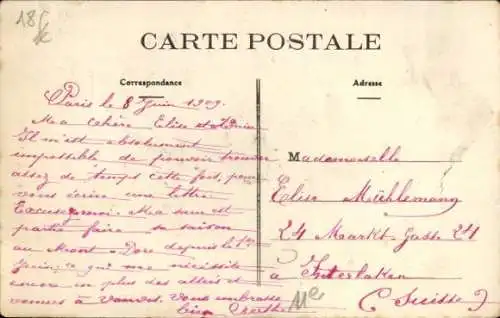 CARTE POSTALE
Correspondance
Adresse
Paris le 8 Juin 1909.
Ma chère Elise
Il m'est absolument
impossible de pouvoir trouver
assez de temps cette fois, pour
vous écrire une lettre
Excusez-moi. Ma sœur est
partie faire sa saison
au Mont-Dore depuis le 1er
Juin, ce qui me nécessite
encore en plus des allers et
venues à Vanves. Vous embrasse
bien Berthe
Mademoiselle
Elise Mühlemann
24 Markt-Gasse 24
à Interlaken
(Suisse)
Mlle